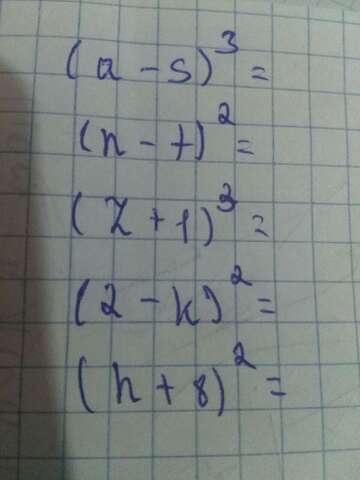 (a - s)³ =
(n - t)² =
(z + 1)³ =
(2 - k)² =
(h + 8)² =